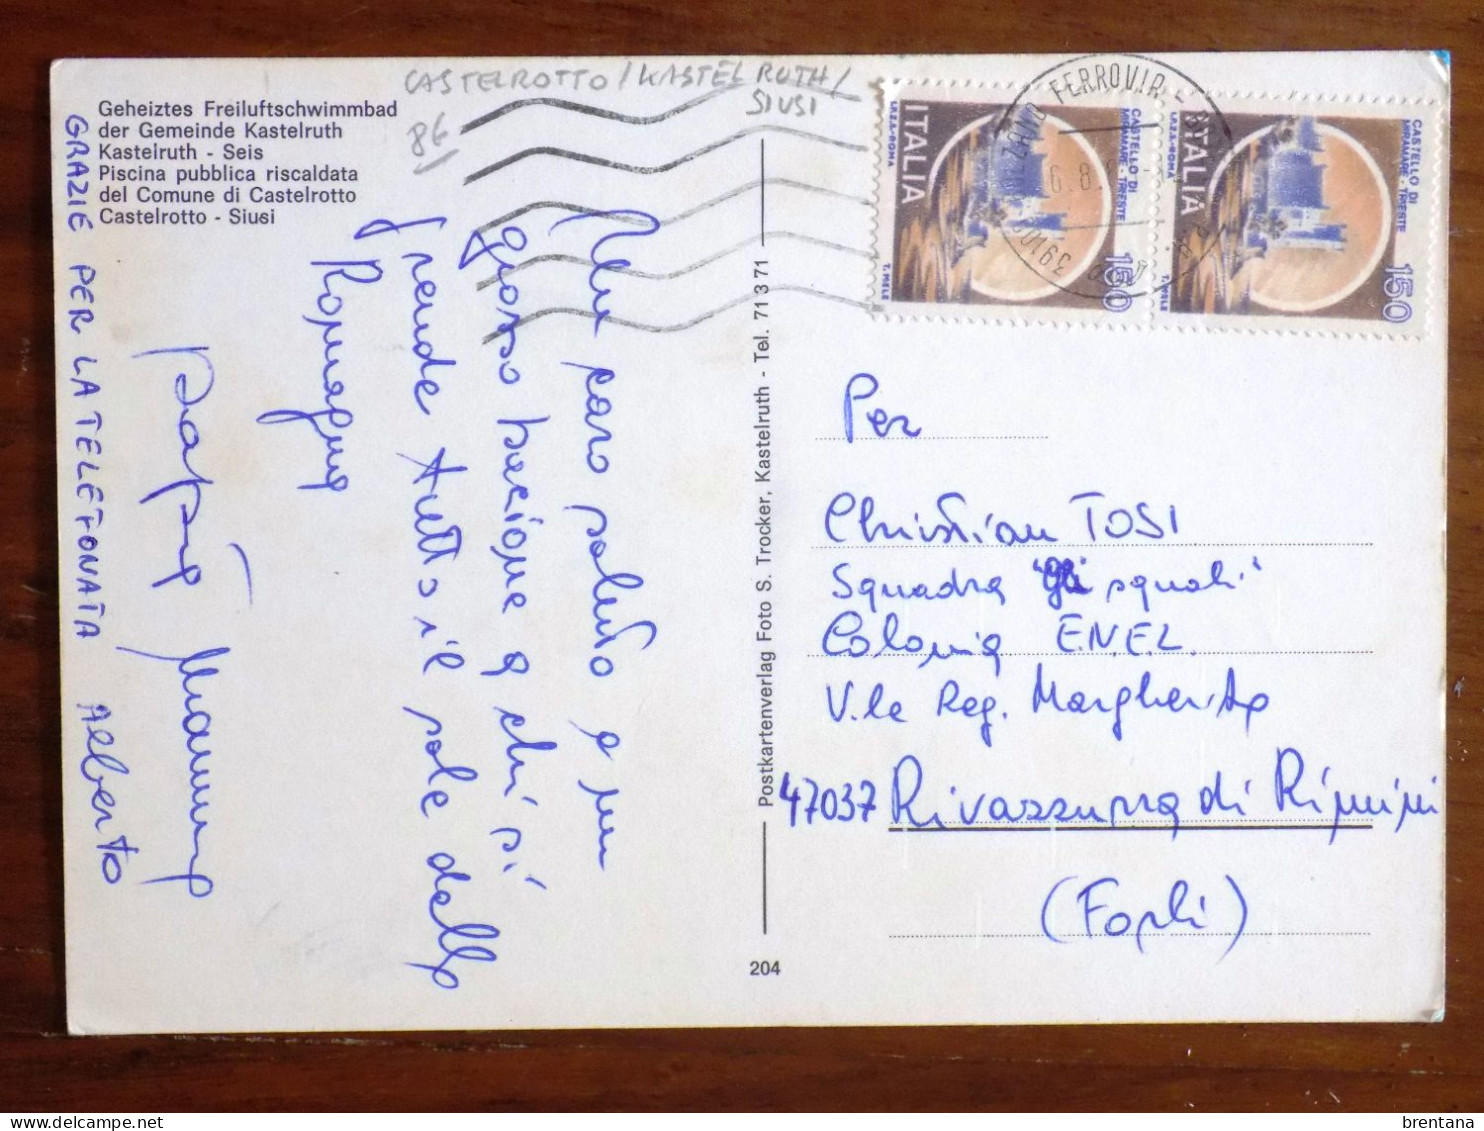 CASTELROTTO / KASTELRUTH /
SIUSI
86
Geheiztes Freiluftschwimmbad
der Gemeinde Kastelruth
Kastelruth - Seis
Piscina pubblica riscaldata
del Comune di Castelrotto
Castelrotto - Siusi
Un caro saluto e un
grosso bacione a chi si
prende tutto il sole della
Romagna
papà mamma
GRAZIE PER LA TELEFONATA Alberto
Postkartenverlag Foto S. Trocker, Kastelruth - Tel. 71 3 71
204
ITALIA
I.P.Z.S.-ROMA
CASTELLO DI
MIRAMARE - TRIESTE
150
T. MIELE
ITALIA
I.P.Z.S.-ROMA
CASTELLO DI
MIRAMARE - TRIESTE
150
T. MIELE
BOLZANO FERROVIA
6.8.
39100
Per
Christian TOSI
Squadra "Gli squali"
Colonia E.N.E.L.
V.le Reg. Margherita
47037 Rivazzurra di Rimini
(Forlì)
brentana